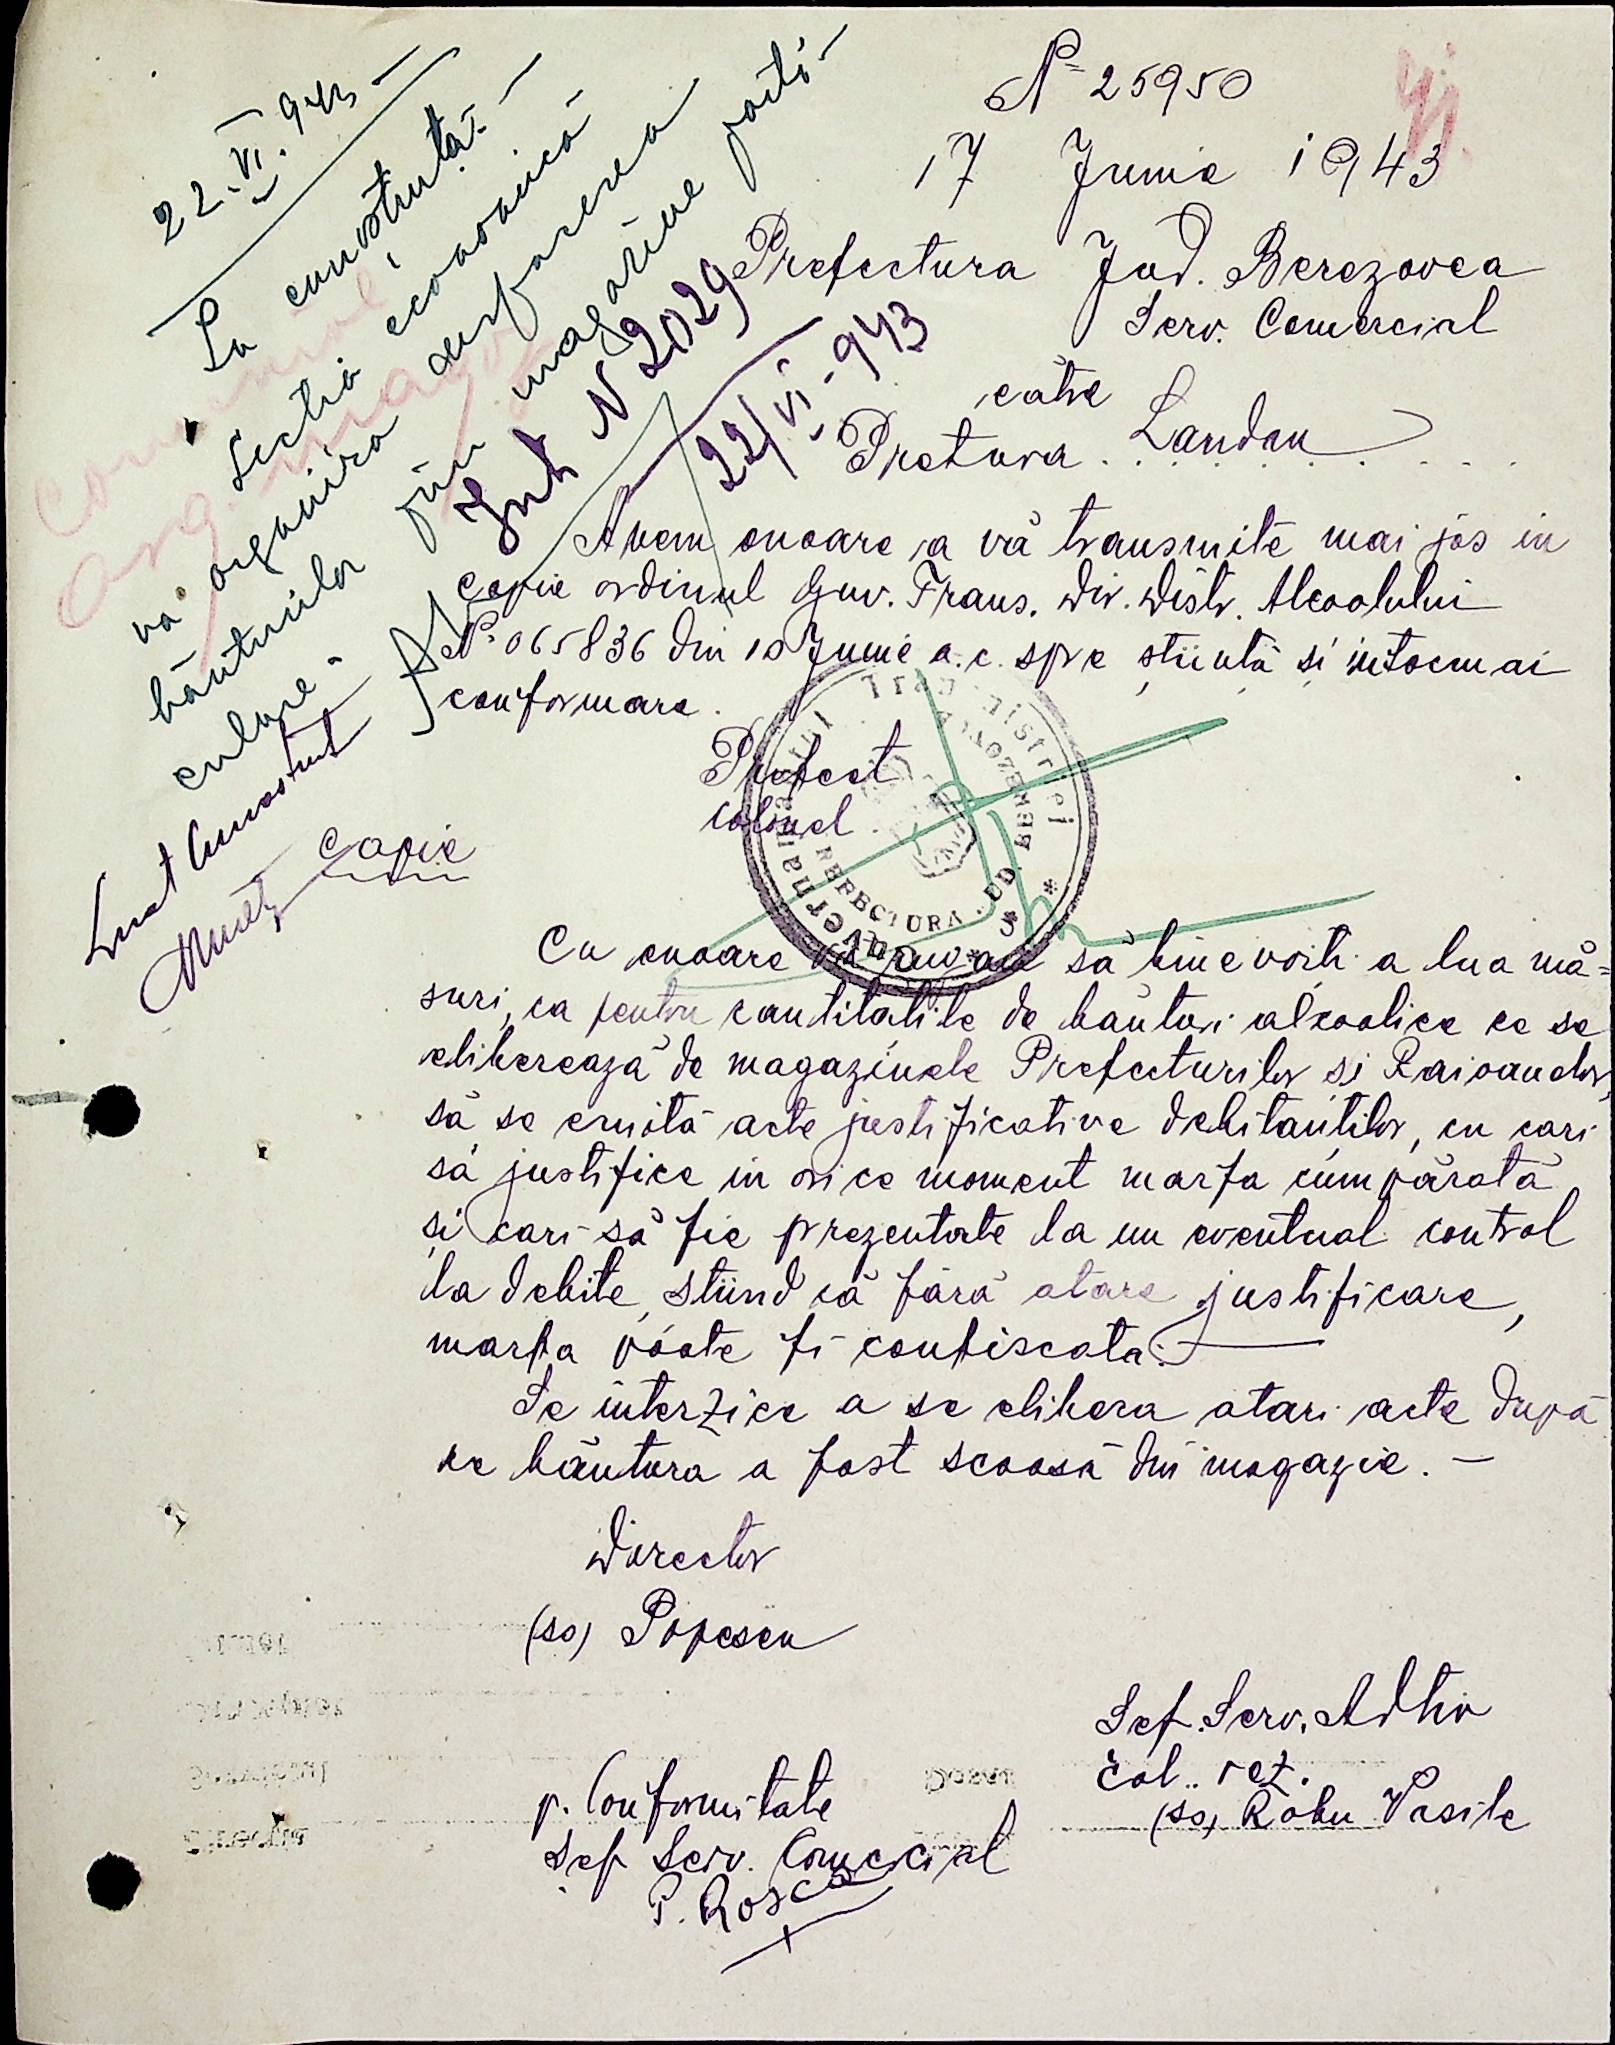 No 25950
17 Junie 1943
Prefectura Jud. Berezovca
Serv. Comercial
către
Pretura . Landau
22.VI.943
La cunoștință
Secția economică
va organiza desfacerea
băuturilor prin magazine parti-
culare.-
Int N 2029
22/VI.943
Luat cunostint
Avem onoare a vă transmite mai jos in
copie ordinul Guv. Trans. Dir. Distr. Alcoolului
No. 065836 din 10 Junie a.c. spre știință și intocmai
conformare.
Prefect
Colonel
Guvernamantul Transnistriei
PREFECTURA JUD. BEREZOVCA
* 3 *
Copie
Cu onoare vă rugam să binevoiti a lua mă=
suri, ca pentru cantitatile de băuturi alcoolice ce se
eliberează de magazinele Prefecturilor si Raioanelor,
să se emită acte justificative debitantilor, cu cari
să justifice in orice moment marfa cumpărată
și cari să fie prezentate la un eventual control
la debite, stiind că fără atare justificare,
marfa poate fi confiscata.
Se interzice a se elibera atari acte după
ce băutura a fost scoasă din magazie. -
Director
(ss) Popescu
Sef. Serv. Adtiv
Col. rez.
(ss) Robu Vasile
p. Conformitate
Șef Serv. Comercial
P. Rosca